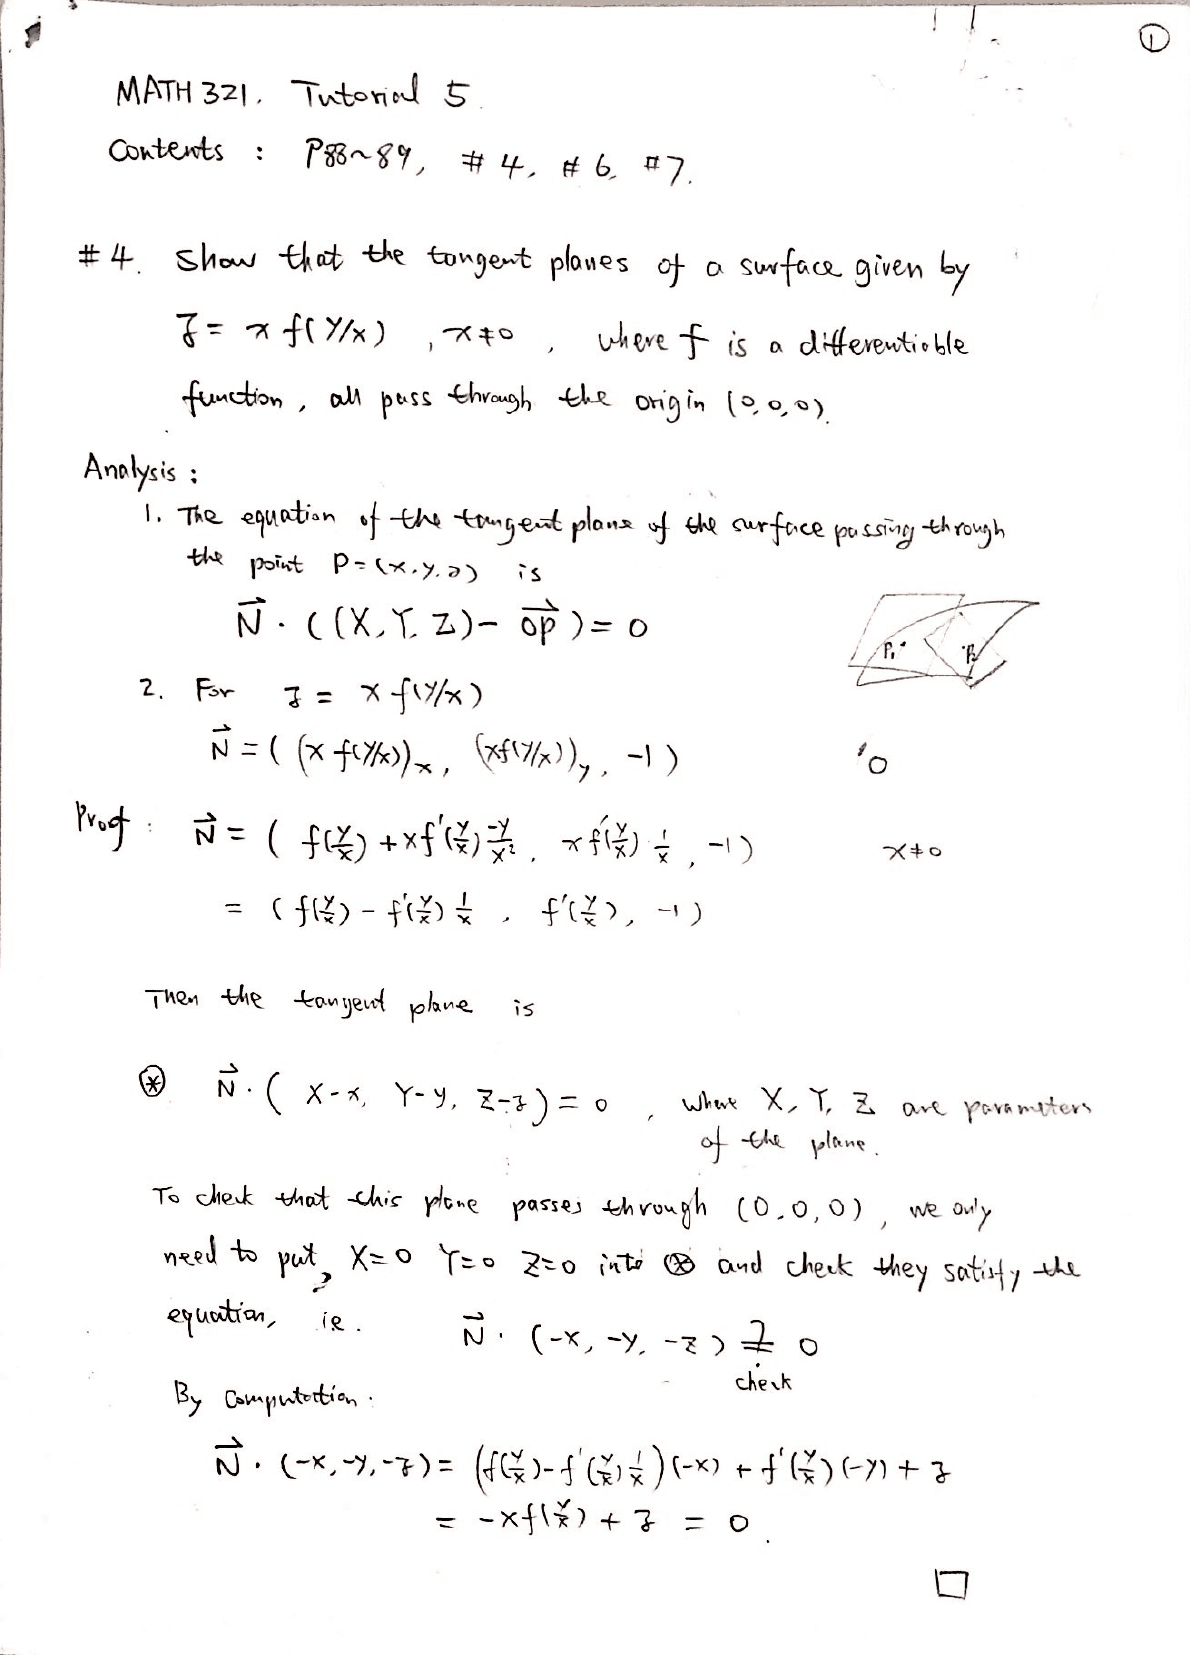 ①
MATH 321. Tutorial 5.
Contents : P88~89, #4, #6, #7.
#4. Show that the tangent planes of a surface given by
z = x f(y/x) , x≠0 , where f is a differentiable
function, all pass through the origin (0,0,0).
Analysis :
1. The equation of the tangent plane of the surface passing through
the point P=(x,y,z) is
N⃗ · ((X,Y,Z) - OP⃗) = 0
P₁ P₂
2. For z = x f(y/x)
N⃗ = ( (x f(y/x))ₓ, (xf(y/x))ᵧ, -1 )
0
Proof : N⃗ = ( f(y/x) + xf'(y/x) -y/x², xf'(y/x) 1/x, -1 ) x≠0
= ( f(y/x) - f'(y/x) 1/x , f'(y/x), -1 )
Then the tangent plane is
⊛ N⃗ · ( X-x, Y-y, Z-z ) = 0 , where X, Y, Z are parameters
of the plane.
To check that this plane passes through (0,0,0), we only
need to put, X=0 Y=0 Z=0 into ⊛ and check they satisfy the
equation, ie. N⃗ · (-x, -y, -z) ≟ 0
check
By Computation.
N⃗ · (-x,-y,-z) = (f(y/x) - f'(y/x) 1/x)(-x) + f'(y/x)(-y) + z
= -xf(y/x) + z = 0.
□